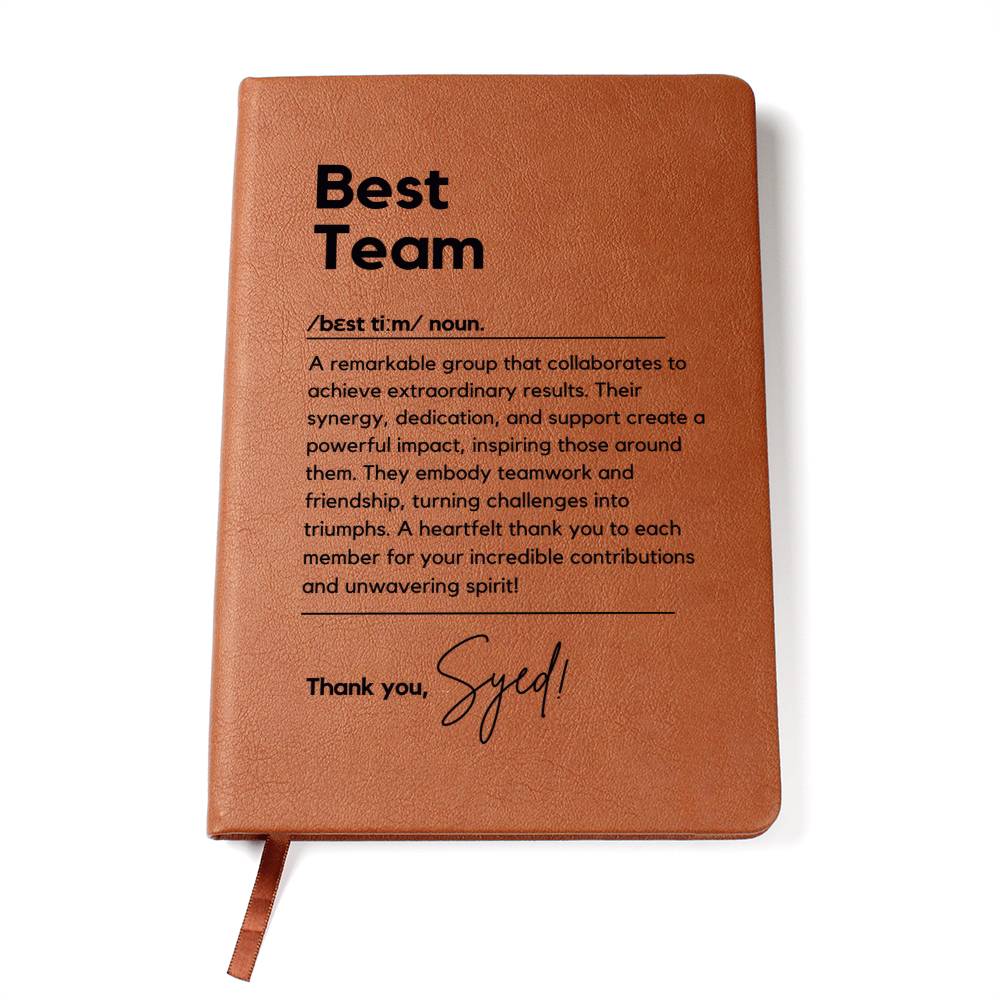 Best
Team
/bɛst tiːm/ noun.
A remarkable group that collaborates to
achieve extraordinary results. Their
synergy, dedication, and support create a
powerful impact, inspiring those around
them. They embody teamwork and
friendship, turning challenges into
triumphs. A heartfelt thank you to each
member for your incredible contributions
and unwavering spirit!
Thank you, Syed!